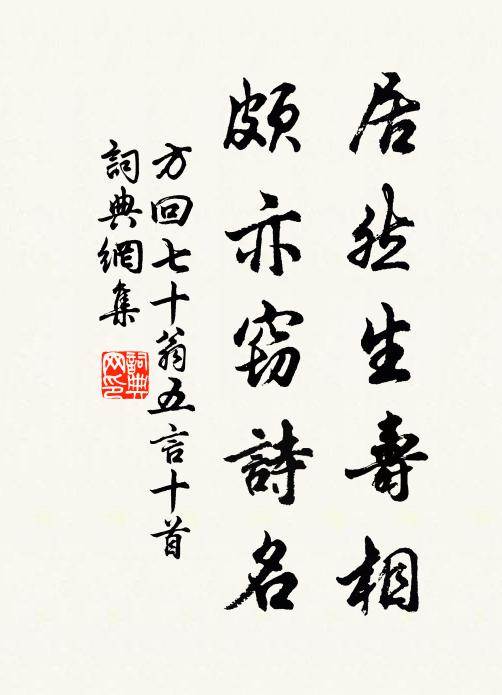 居然生壽相
頗亦窃詩名
方回七十翁五言十首
詞典網集
詞典网印